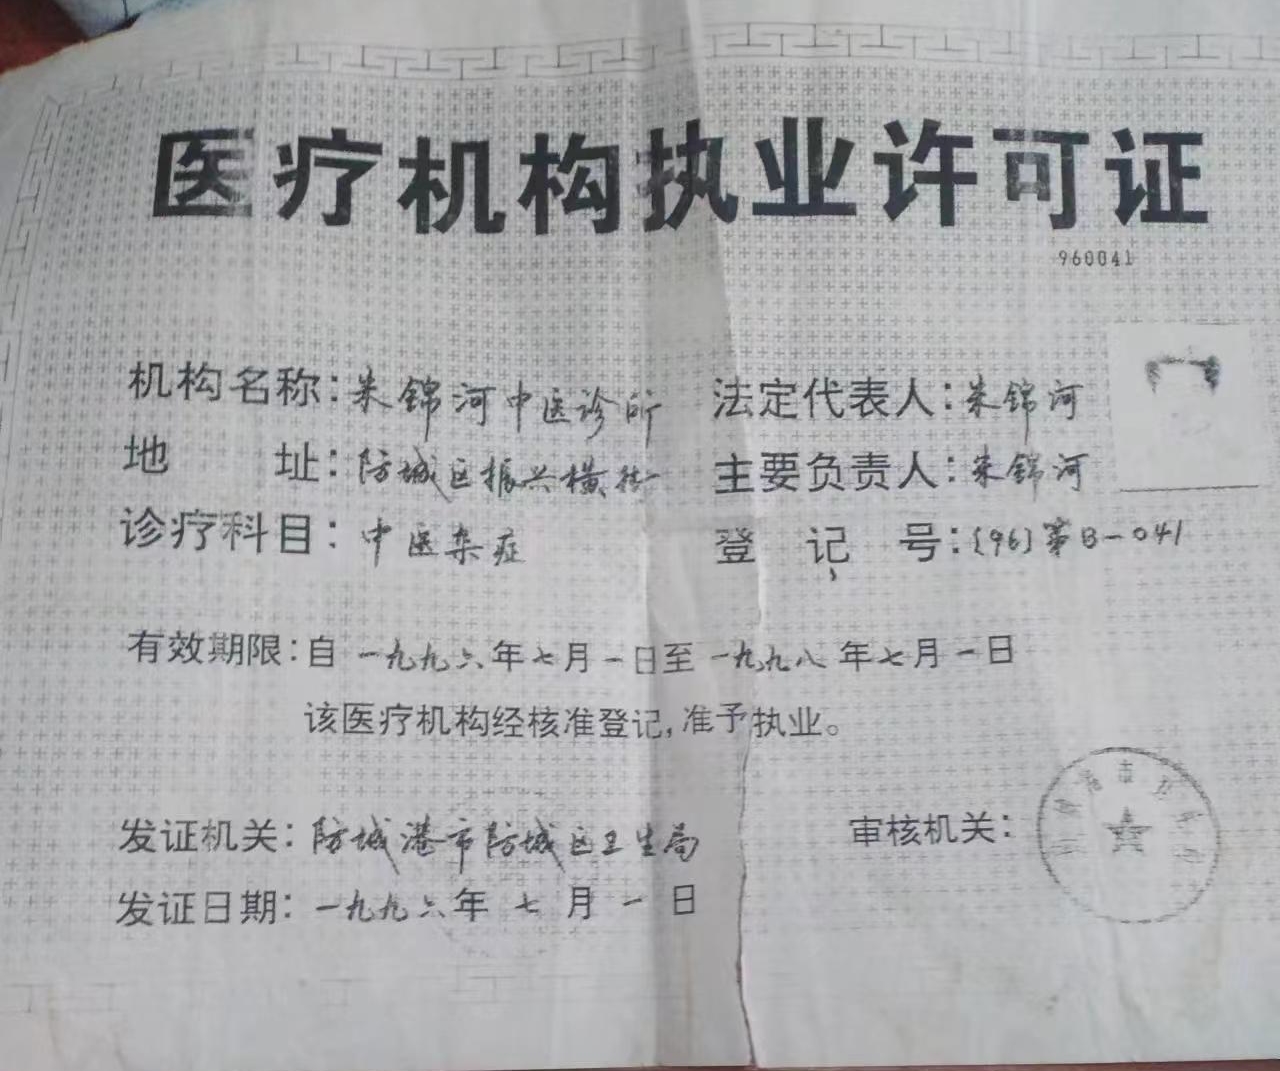 医疗机构执业许可证
960041
机构名称：朱锦河中医诊所
法定代表人：朱锦河
地 址：防城区振兴横街
主要负责人：朱锦河
诊疗科目：中医杂症
登 记 号：(96)第B-041
有效期限：自一九九六年七月一日至一九九八年七月一日
该医疗机构经核准登记，准予执业。
发证机关：防城港市防城区卫生局
审核机关：
发证日期：一九九六年七月一日